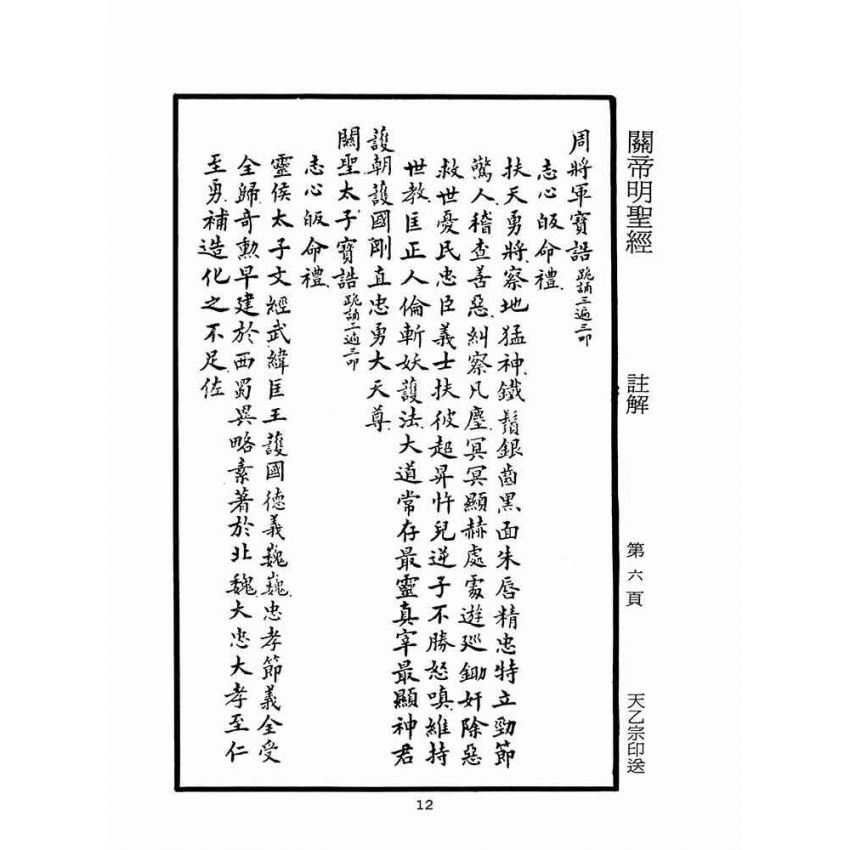 關帝明聖經 註解 第六頁 天乙宗印送
周將軍寶誥跪誦三遍三叩
志心皈命禮
扶天勇將察地猛神鐵鬚銀齒黑面朱唇精忠特立勁節
驚人稽查善惡糾察凡塵冥冥顯赫處處遊巡鋤奸除惡
救世憂民忠臣義士扶彼超昇忤兒逆子不勝怒嗔維持
世教匡正人倫斬妖護法大道常存最靈真宰最顯神君
護朝護國剛直忠勇大天尊
關聖太子寶誥跪誦三遍三叩
志心皈命禮
靈侯太子文經武緯匡王護國德義巍巍忠孝節義全受
全歸奇勳早建於西蜀異略素著於北魏大忠大孝至仁
至勇補造化之不足佐
12